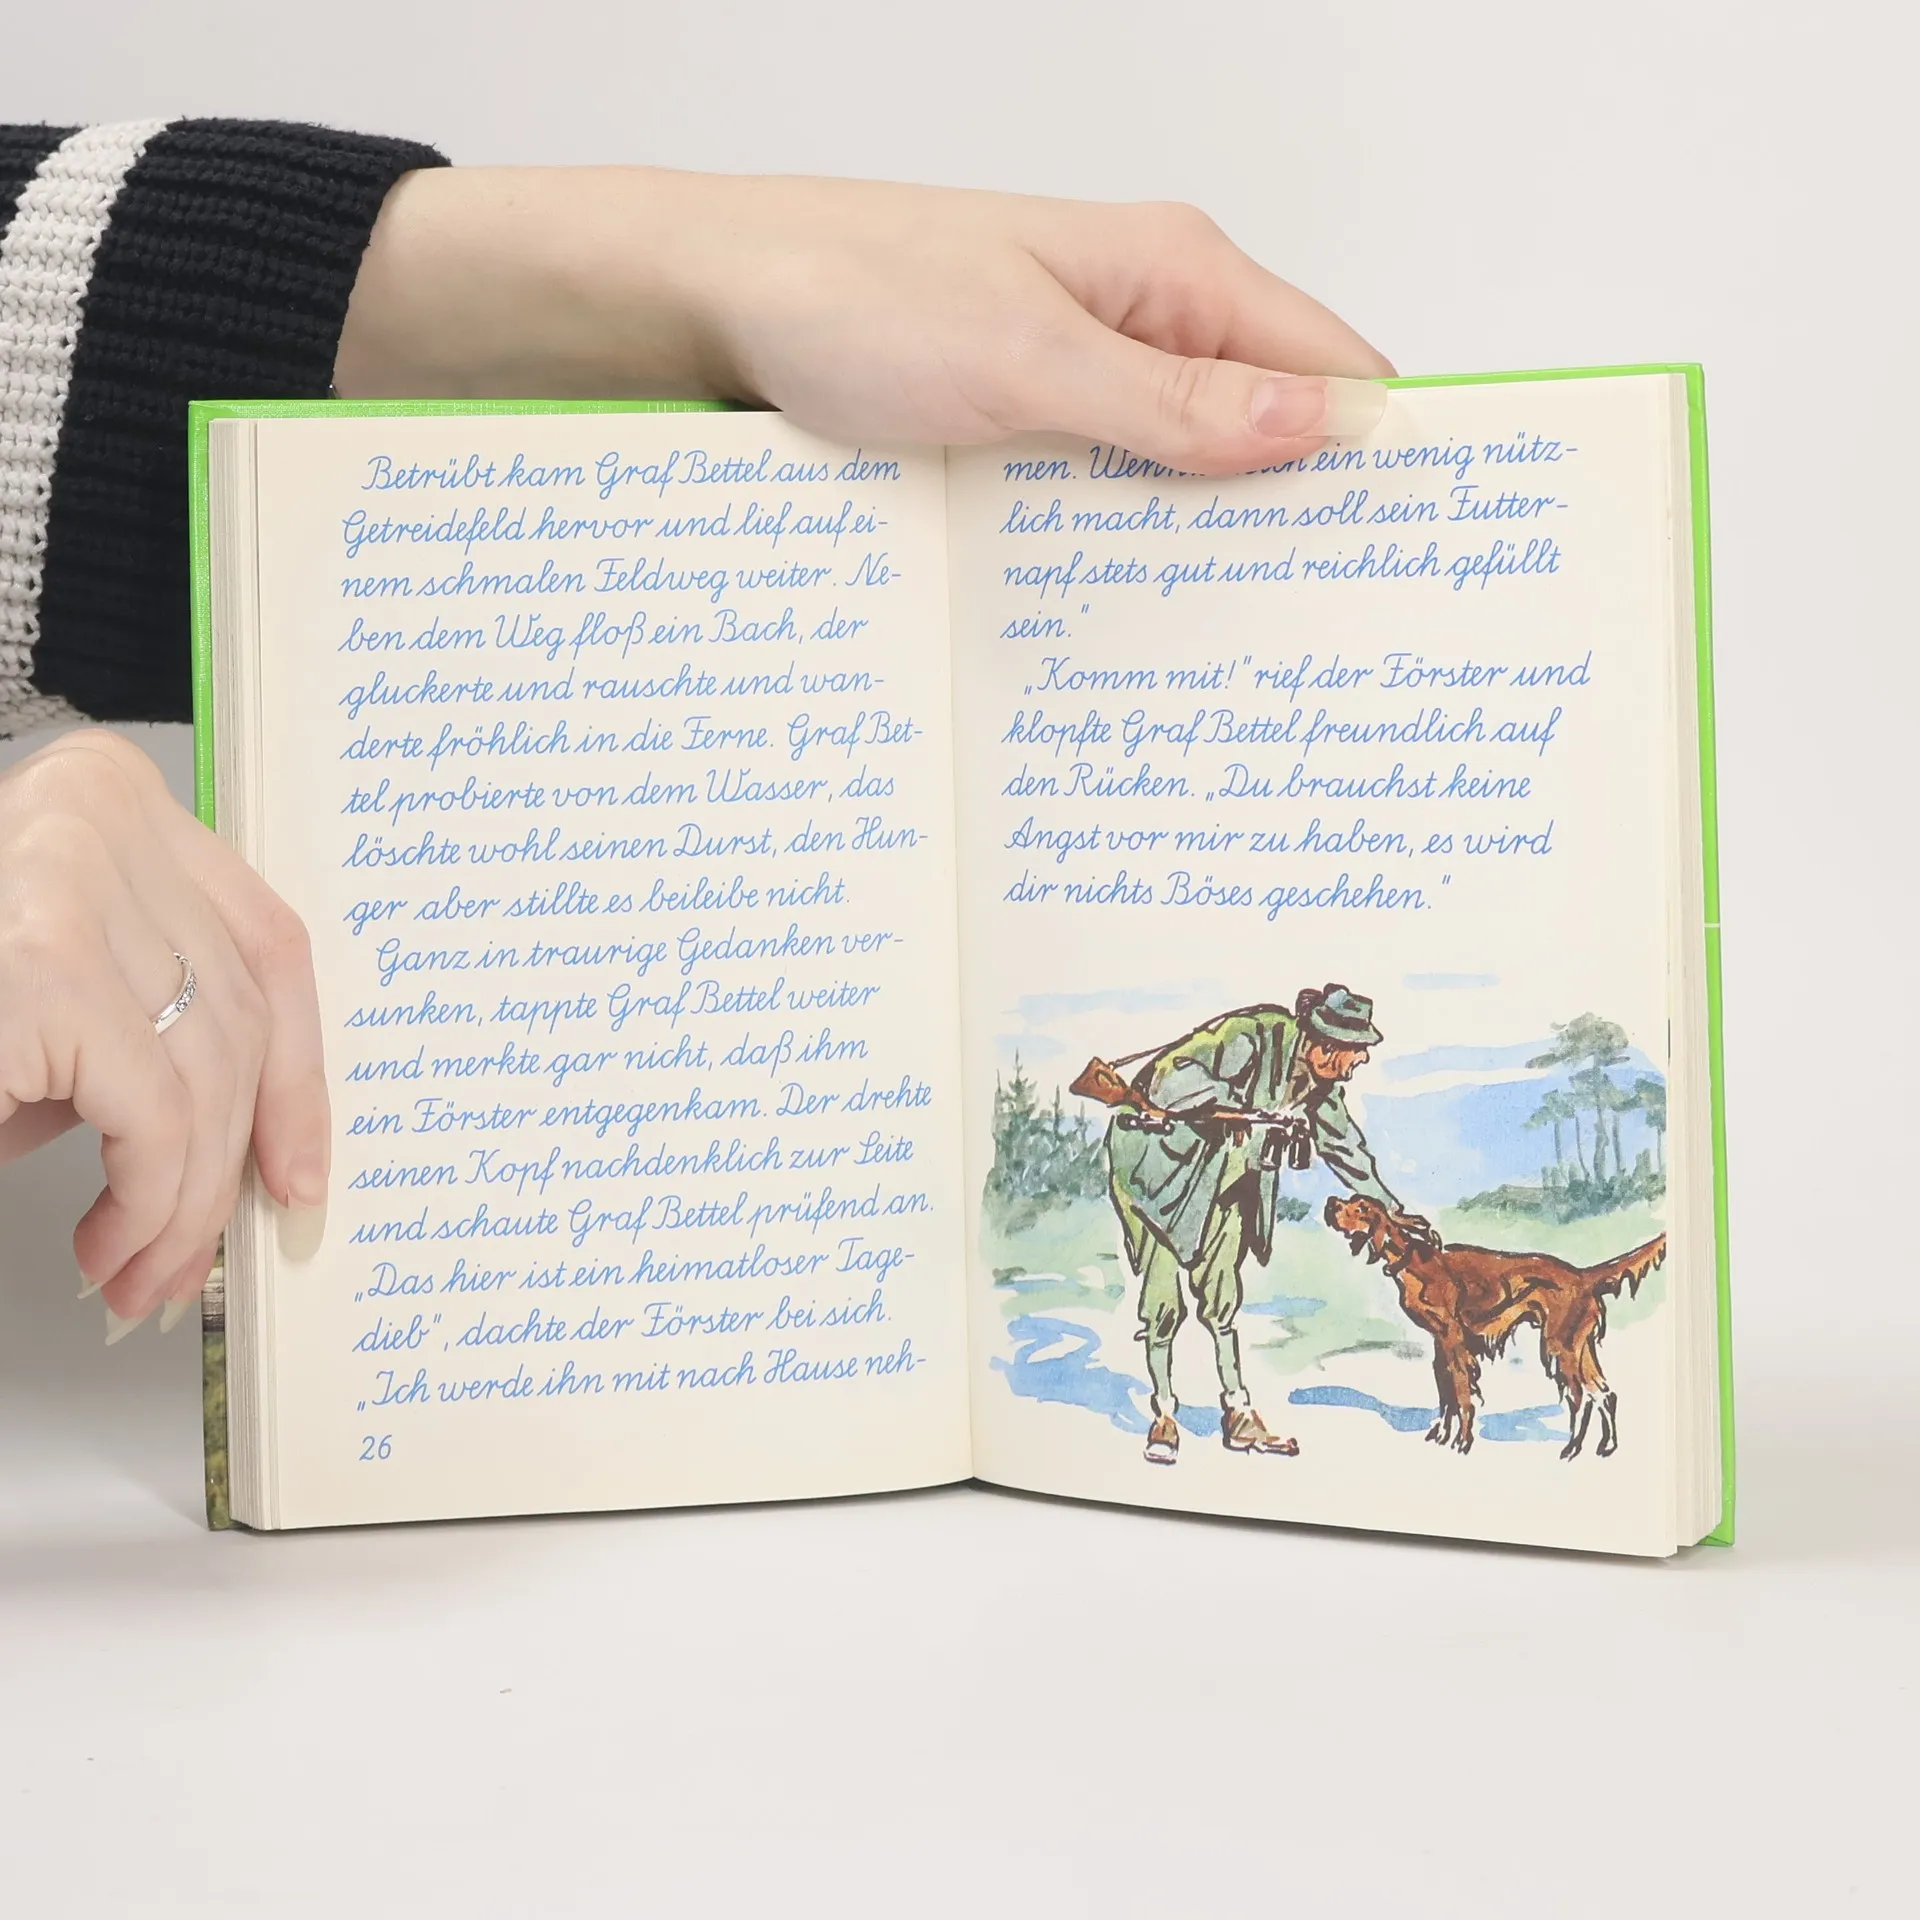 Betrübt kam Graf Bettel aus dem
Getreidefeld hervor und lief auf ei-
nem schmalen Feldweg weiter. Ne-
ben dem Weg floß ein Bach, der
gluckerte und rauschte und wan-
derte fröhlich in die Ferne. Graf Bet-
tel probierte von dem Wasser, das
löschte wohl seinen Durst, den Hun-
ger aber stillte es beileibe nicht.
Ganz in traurige Gedanken ver-
sunken, tappte Graf Bettel weiter
und merkte gar nicht, daß ihm
ein Förster entgegenkam. Der drehte
seinen Kopf nachdenklich zur Seite
und schaute Graf Bettel prüfend an.
„Das hier ist ein heimatloser Tage-
dieb", dachte der Förster bei sich.
„Ich werde ihn mit nach Hause neh-
26
men. ein wenig nütz-
lich macht, dann soll sein Futter-
napf stets gut und reichlich gefüllt
sein."
„Komm mit!" rief der Förster und
klopfte Graf Bettel freundlich auf
den Rücken. „Du brauchst keine
Angst vor mir zu haben, es wird
dir nichts Böses geschehen."